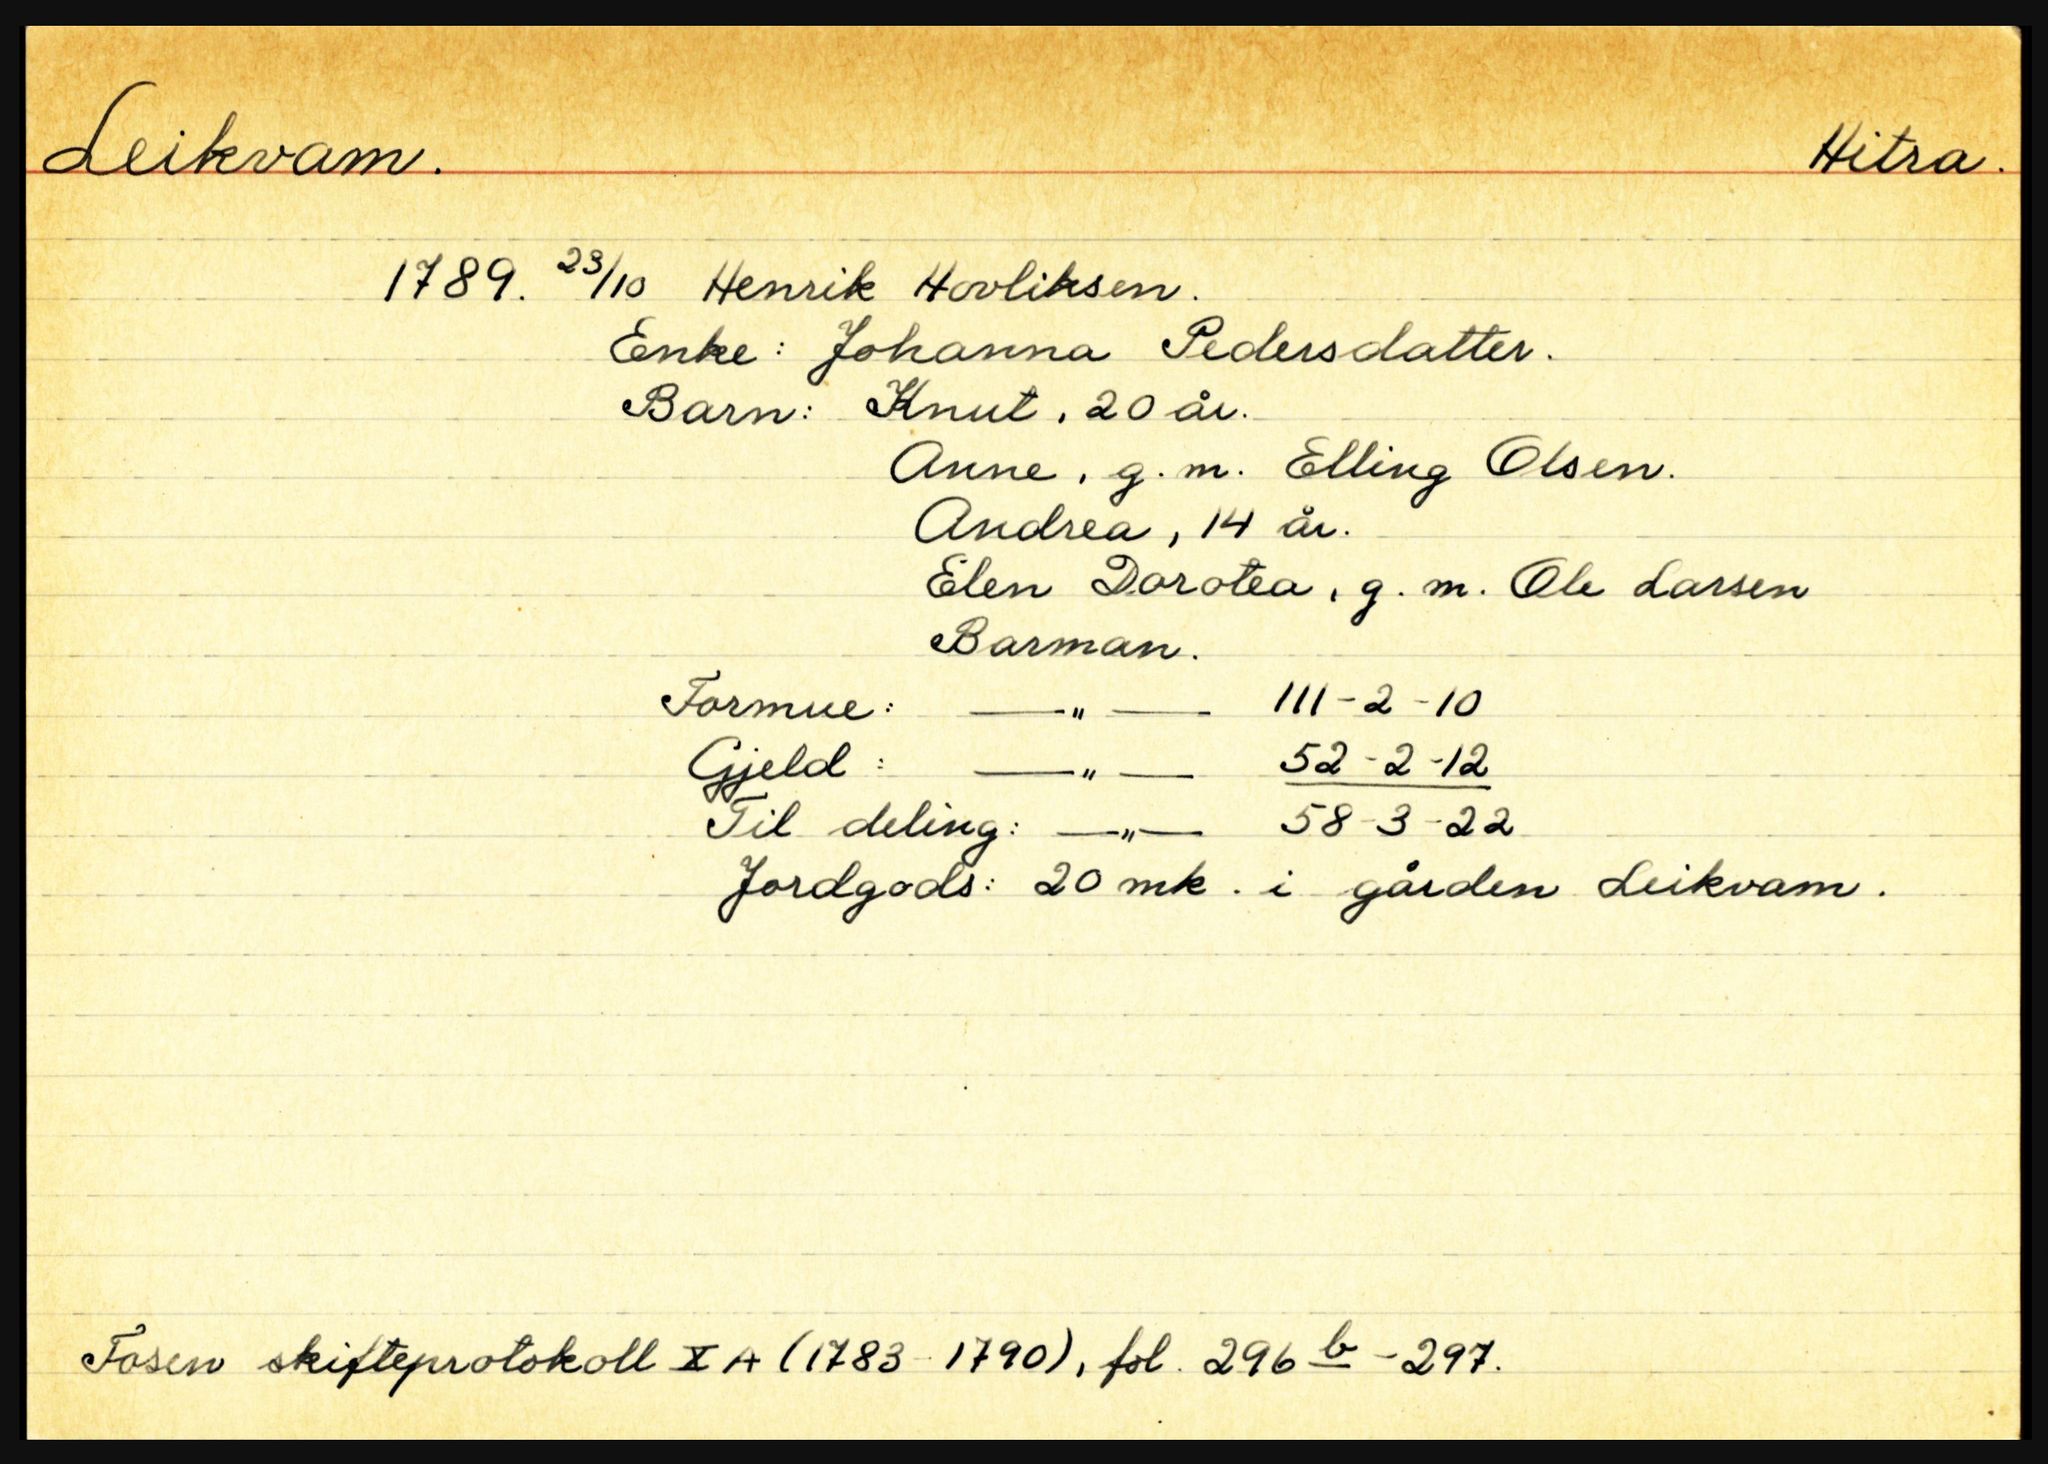 Leikvam. Hitra.
1789. 23/10 Henrik Hovliksen.
Enke: Johanna Pedersdatter.
Barn: Knut, 20 år.
Anne, g. m. Elling Olsen.
Andrea, 14 år.
Elen Dorotea, g. m. Ole Larsen
Barman.
Formue: —"— 111-2-10
Gjeld: —"— 52-2-12
Til deling: —"— 58-3-22
Jordgods: 20 mk. i gården Leikvam.
Fosen skifteprotokoll X A (1783-1790), fol. 296 b - 297.